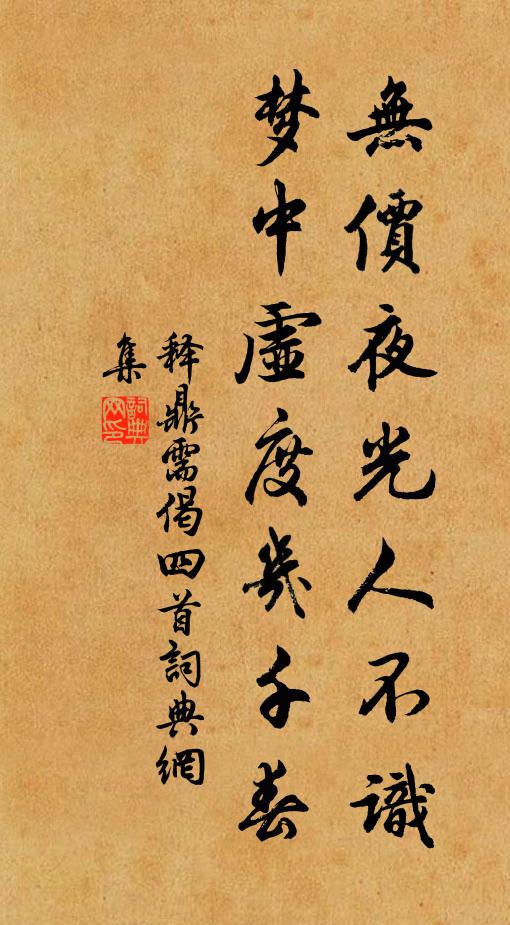 無價夜光人不識
梦中虛度幾千春
释鼎需偈四首詞典網
集
詞典
网印